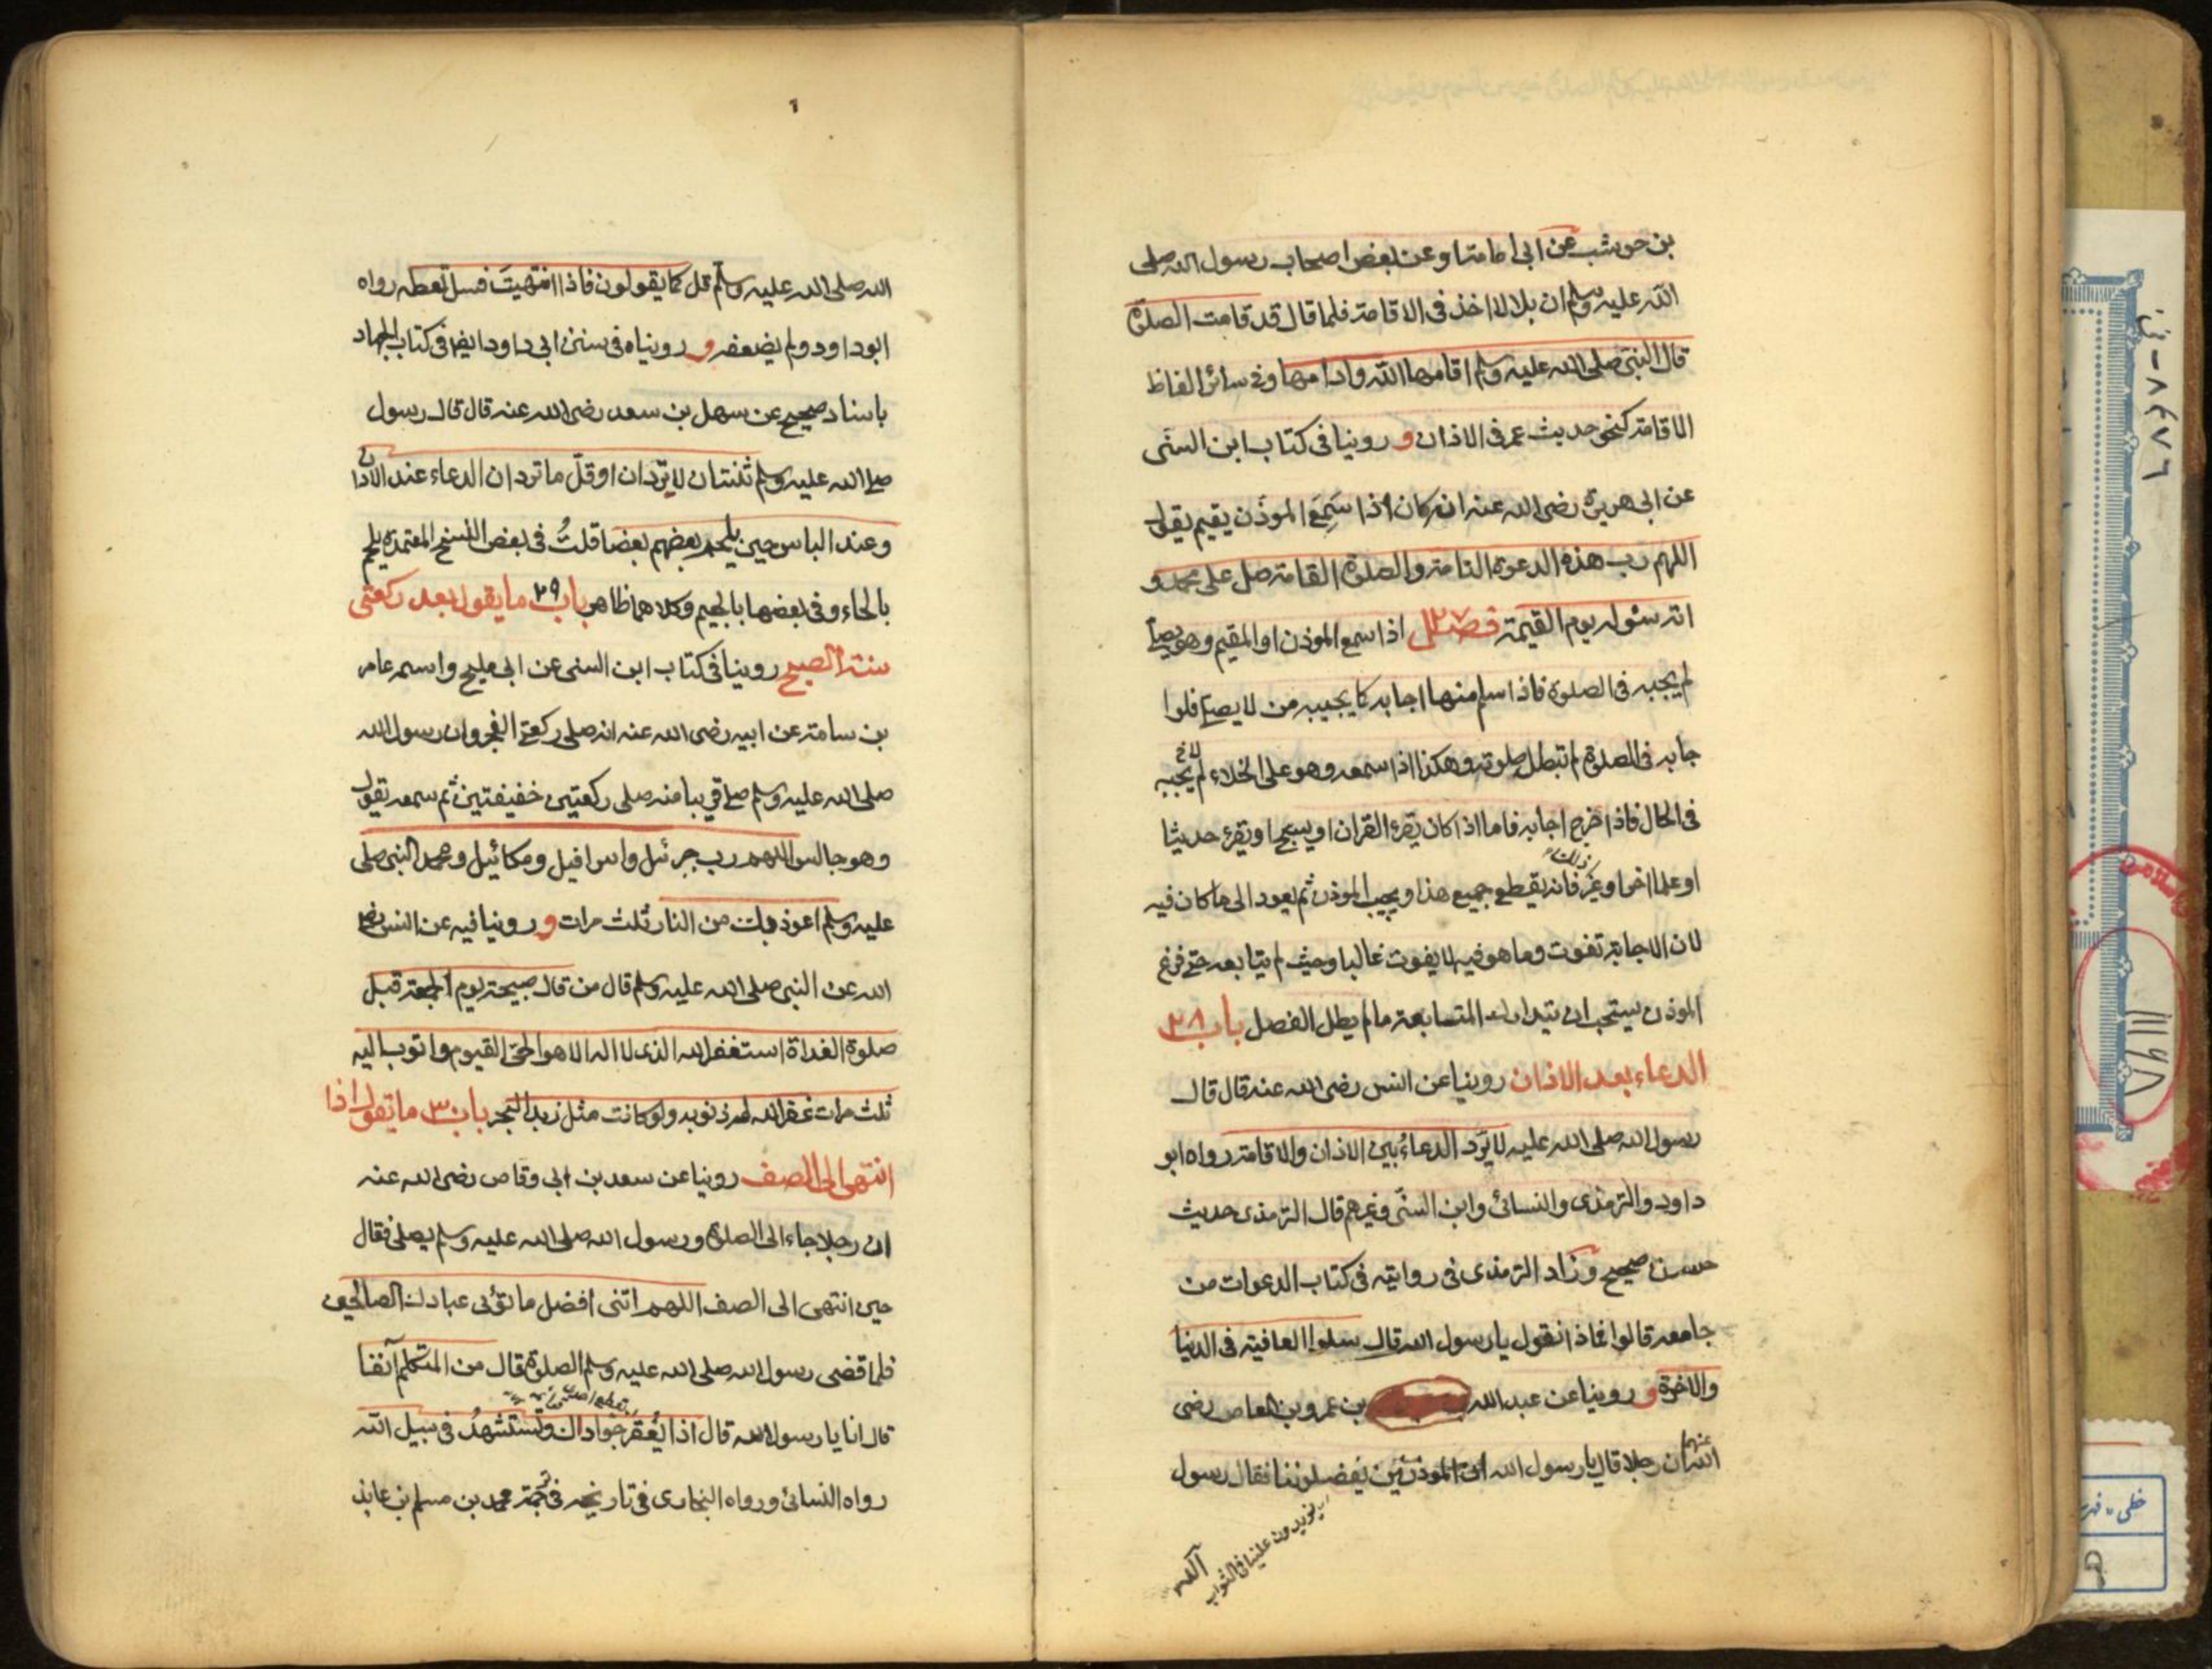 بن حوشب عن ابى امامة او عن بعض اصحاب رسول الله صلى
الله عليه وسلم ان بلالا اخذ فى الاقامة فلما قال قد قامت الصلوة
قال النبى صلى الله عليه وسلم اقامها الله وادامها وفى سائر الفاظ
الاقامة كنحو حديث عمر فى الاذان و روينا فى كتاب ابن السنى
عن ابى هريرة رضى الله عنه انه كان اذا سَمِعَ الموذن يقيم يقول
اللهم رب هذه الدعوة التامة والصلوة القامة صل على محمد و
اته سئوله يوم القيمة فصل ٢٧ اذا سمع الموذن او المقيم وهو يصلى
لم يجبه فى الصلوة فاذا سلم منها اجابه كما يجيبه من لا يصلى فلوا
جابه فى الصلوة لم تبطل صلوته وهكذا اذا سمعه وهو على الخلاء لم يجبه
فى الحال فاذا خرج اجابه فاما اذا كان يقرء القران او يسبح او يقرء حديثا
او علما اخر او غير ذلك فانه يقطع جميع هذا ويجيب الموذن ثم يعود الى ما كان فيه
لان الاجابة تفوت وما هو فيه لا يفوت غالبا وحيث لم يتابعه حتى فرغ
الموذن يستحب ان يتدارك المتابعة ما لم يطل الفصل باب ٢٨
الدعاء بعد الاذان روينا عن انس رضى الله عنه قال قال
رسول الله صلى الله عليه لا يرَد الدعاءُ بين الاذان والاقامة رواه ابو
داود والترمذى والنسائ وابن السنّى وغيرهم قال الترمذى حديث
حسن صحيح وزاد الترمذى فى روايته فى كتاب الدعوات من
جامعه قالوا فماذا نقول يا رسول الله قال سلوا العافية فى الدنيا
والاخرة و روينا عن عبد الله بن عمرو بن العاص رضى
الله عنهما ان رجلا قال يا رسول الله ان الموذنين يفضلوننا فقال رسول
يزيدون علينا فى الثواب
الله
الله صلى الله عليه وسلم قل كما يقولون فاذا انتهيتَ فسل تعطه رواه
ابو داود ولم يضعفه و رويناه فى سنن ابى داود ايضا فى كتاب الجهاد
باسناد صحيح عن سهل بن سعد رضى الله عنه قال قال رسول
صلى الله عليه وسلم ثنتان لا تردان او قلّ ما تردان الدعاء عند الاذان
وعند الباس حين يلجم بعضهم بعضا قلتُ فى بعض النسخ المعتمدة يلحم
بالحاء وفى بعضها بالجيم وكلاهما ظاهر باب ٢٩ ما يقول بعد ركعتى
سنة الصبح روينا فى كتاب ابن السنى عن ابى مليح واسمه عامر
بن سامة عن ابيه رضى الله عنه انه صلى ركعتى الفجر وان رسول الله
صلى الله عليه وسلم صلى قريبا منه صلى ركعتين خفيفتين ثم سمعه يقول
وهو جالس اللهم رب جبرئيل واسرافيل ومكائيل ومحمد النبى صلى
عليه وسلم اعوذ بك من النار ثلث مرات و روينا فيه عن انس رضى
الله عن النبى صلى الله عليه وسلم قال من قال صبيحة يوم الجمعة قبل
صلوة الغداة استغفر الله الذى لا اله الا هو الحى القيوم واتوب اليه
ثلث مرات غفر الله له ذنوبه ولو كانت مثل زبد البحر باب ٣٠ ما يقول اذا
انتهى الى الصف روينا عن سعد بن ابى وقاص رضى الله عنه
ان رجلا جاء الى الصلوة ورسول الله صلى الله عليه وسلم يصلى فقال
حين انتهى الى الصف اللهم اتنى افضل ما تؤتى عبادك الصالحين
فلما قضى رسول الله صلى الله عليه وسلم الصلوة قال من المتكلم آنفا
قال انا يا رسول الله قال اذا يُعقر جوادك وتستشهدُ فى سبيل الله
رواه النسائ ورواه البخارى فى تاريخه فى ترجمة محمد بن مسلم بن عايذ
١١١٤٨
خطى - فهر